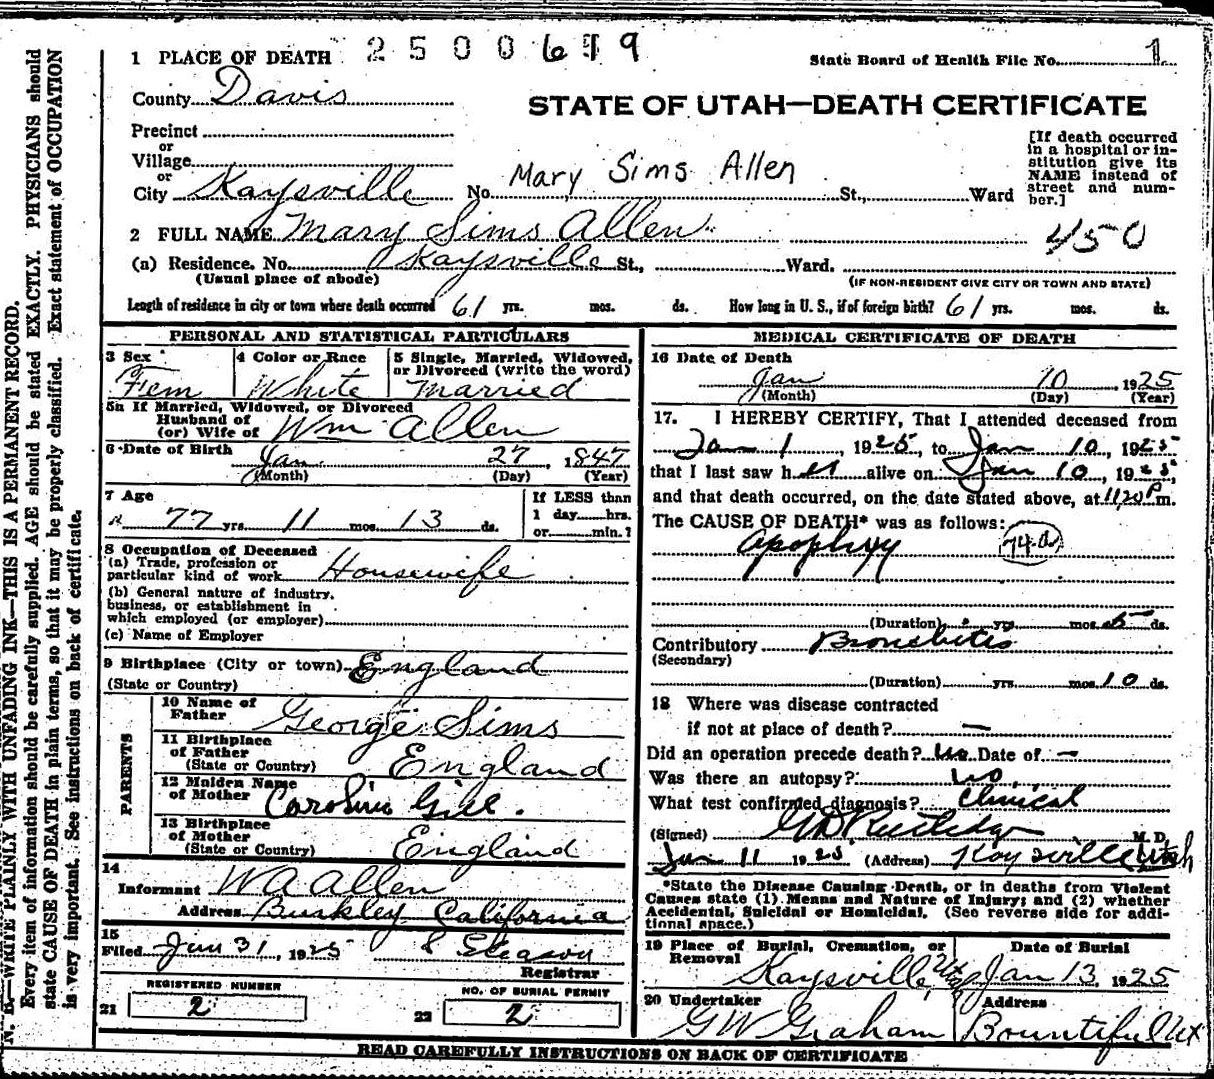 1 PLACE OF DEATH 2500679
State Board of Health File No. 1
County Davis
STATE OF UTAH—DEATH CERTIFICATE
Precinct
or
Village
or
City Kaysville No. Mary Sims Allen St., Ward
[If death occurred in a hospital or in-
stitution give its
NAME instead of
street and num-
ber.]
2 FULL NAME Mary Sims Allen
450
(a) Residence. No. Kaysville St., Ward.
(Usual place of abode) (IF NON-RESIDENT GIVE CITY OR TOWN AND STATE)
Length of residence in city or town where death occurred 61 yrs. mos. ds. How long in U. S., if of foreign birth? 61 yrs. mos. ds.
PERSONAL AND STATISTICAL PARTICULARS
3 Sex 4 Color or Race 5 Single, Married, Widowed,
or Divorced (write the word)
Fem White Married
5a If Married, Widowed, or Divorced
Husband of
(or) Wife of Wm Allen
6 Date of Birth Jan 27, 1847
(Month) (Day) (Year)
7 Age If LESS than
1 day hrs.
77 yrs. 11 mos. 13 ds. or min.?
8 Occupation of Deceased
(a) Trade, profession or
particular kind of work Housewife
(b) General nature of industry,
business, or establishment in
which employed (or employer)
(c) Name of Employer
9 Birthplace (City or town) England
(State or Country)
PARENTS
10 Name of
Father George Sims
11 Birthplace
of Father
(State or Country) England
12 Maiden Name
of Mother Carolin Gill.
13 Birthplace
of Mother
(State or Country) England
14
Informant W A Allen
Address Burkley, California
15
Filed Jan 31, 1925 S Gleason
Registrar
REGISTERED NUMBER NO. OF BURIAL PERMIT
21 2 22 2
MEDICAL CERTIFICATE OF DEATH
16 Date of Death
Jan 10, 1925
(Month) (Day) (Year)
17. I HEREBY CERTIFY, That I attended deceased from
Jan 1, 1925, to Jan 10, 1925
that I last saw her alive on Jan 10, 1925,
and that death occurred, on the date stated above, at 11:20 P m.
The CAUSE OF DEATH* was as follows:
apoplexy 74a
(Duration) yrs. mos. 5 ds.
Contributory Bronchitis
(Secondary)
(Duration) yrs. mos. 10 ds.
18 Where was disease contracted
if not at place of death? —
Did an operation precede death? No Date of —
Was there an autopsy? no.
What test confirmed diagnosis? Clinical
(Signed) G D Rutledge M. D.
Jan 11 1925, (Address) Kaysville Utah
*State the Disease Causing Death, or in deaths from Violent
Causes state (1) Means and Nature of Injury; and (2) whether
Accidental, Suicidal or Homicidal. (See reverse side for addi-
tional space.)
19 Place of Burial, Cremation, or Date of Burial
Removal
Kaysville, Utah Jan 13, 1925
20 Undertaker Address
GW Graham Bountiful Ut
READ CAREFULLY INSTRUCTIONS ON BACK OF CERTIFICATE
N. B.—WRITE PLAINLY WITH UNFADING INK—THIS IS A PERMANENT RECORD.
Every item of information should be carefully supplied. AGE should be stated EXACTLY. PHYSICIANS should
state CAUSE OF DEATH in plain terms, so that it may be properly classified. Exact statement of OCCUPATION
is very important. See instructions on back of certificate.